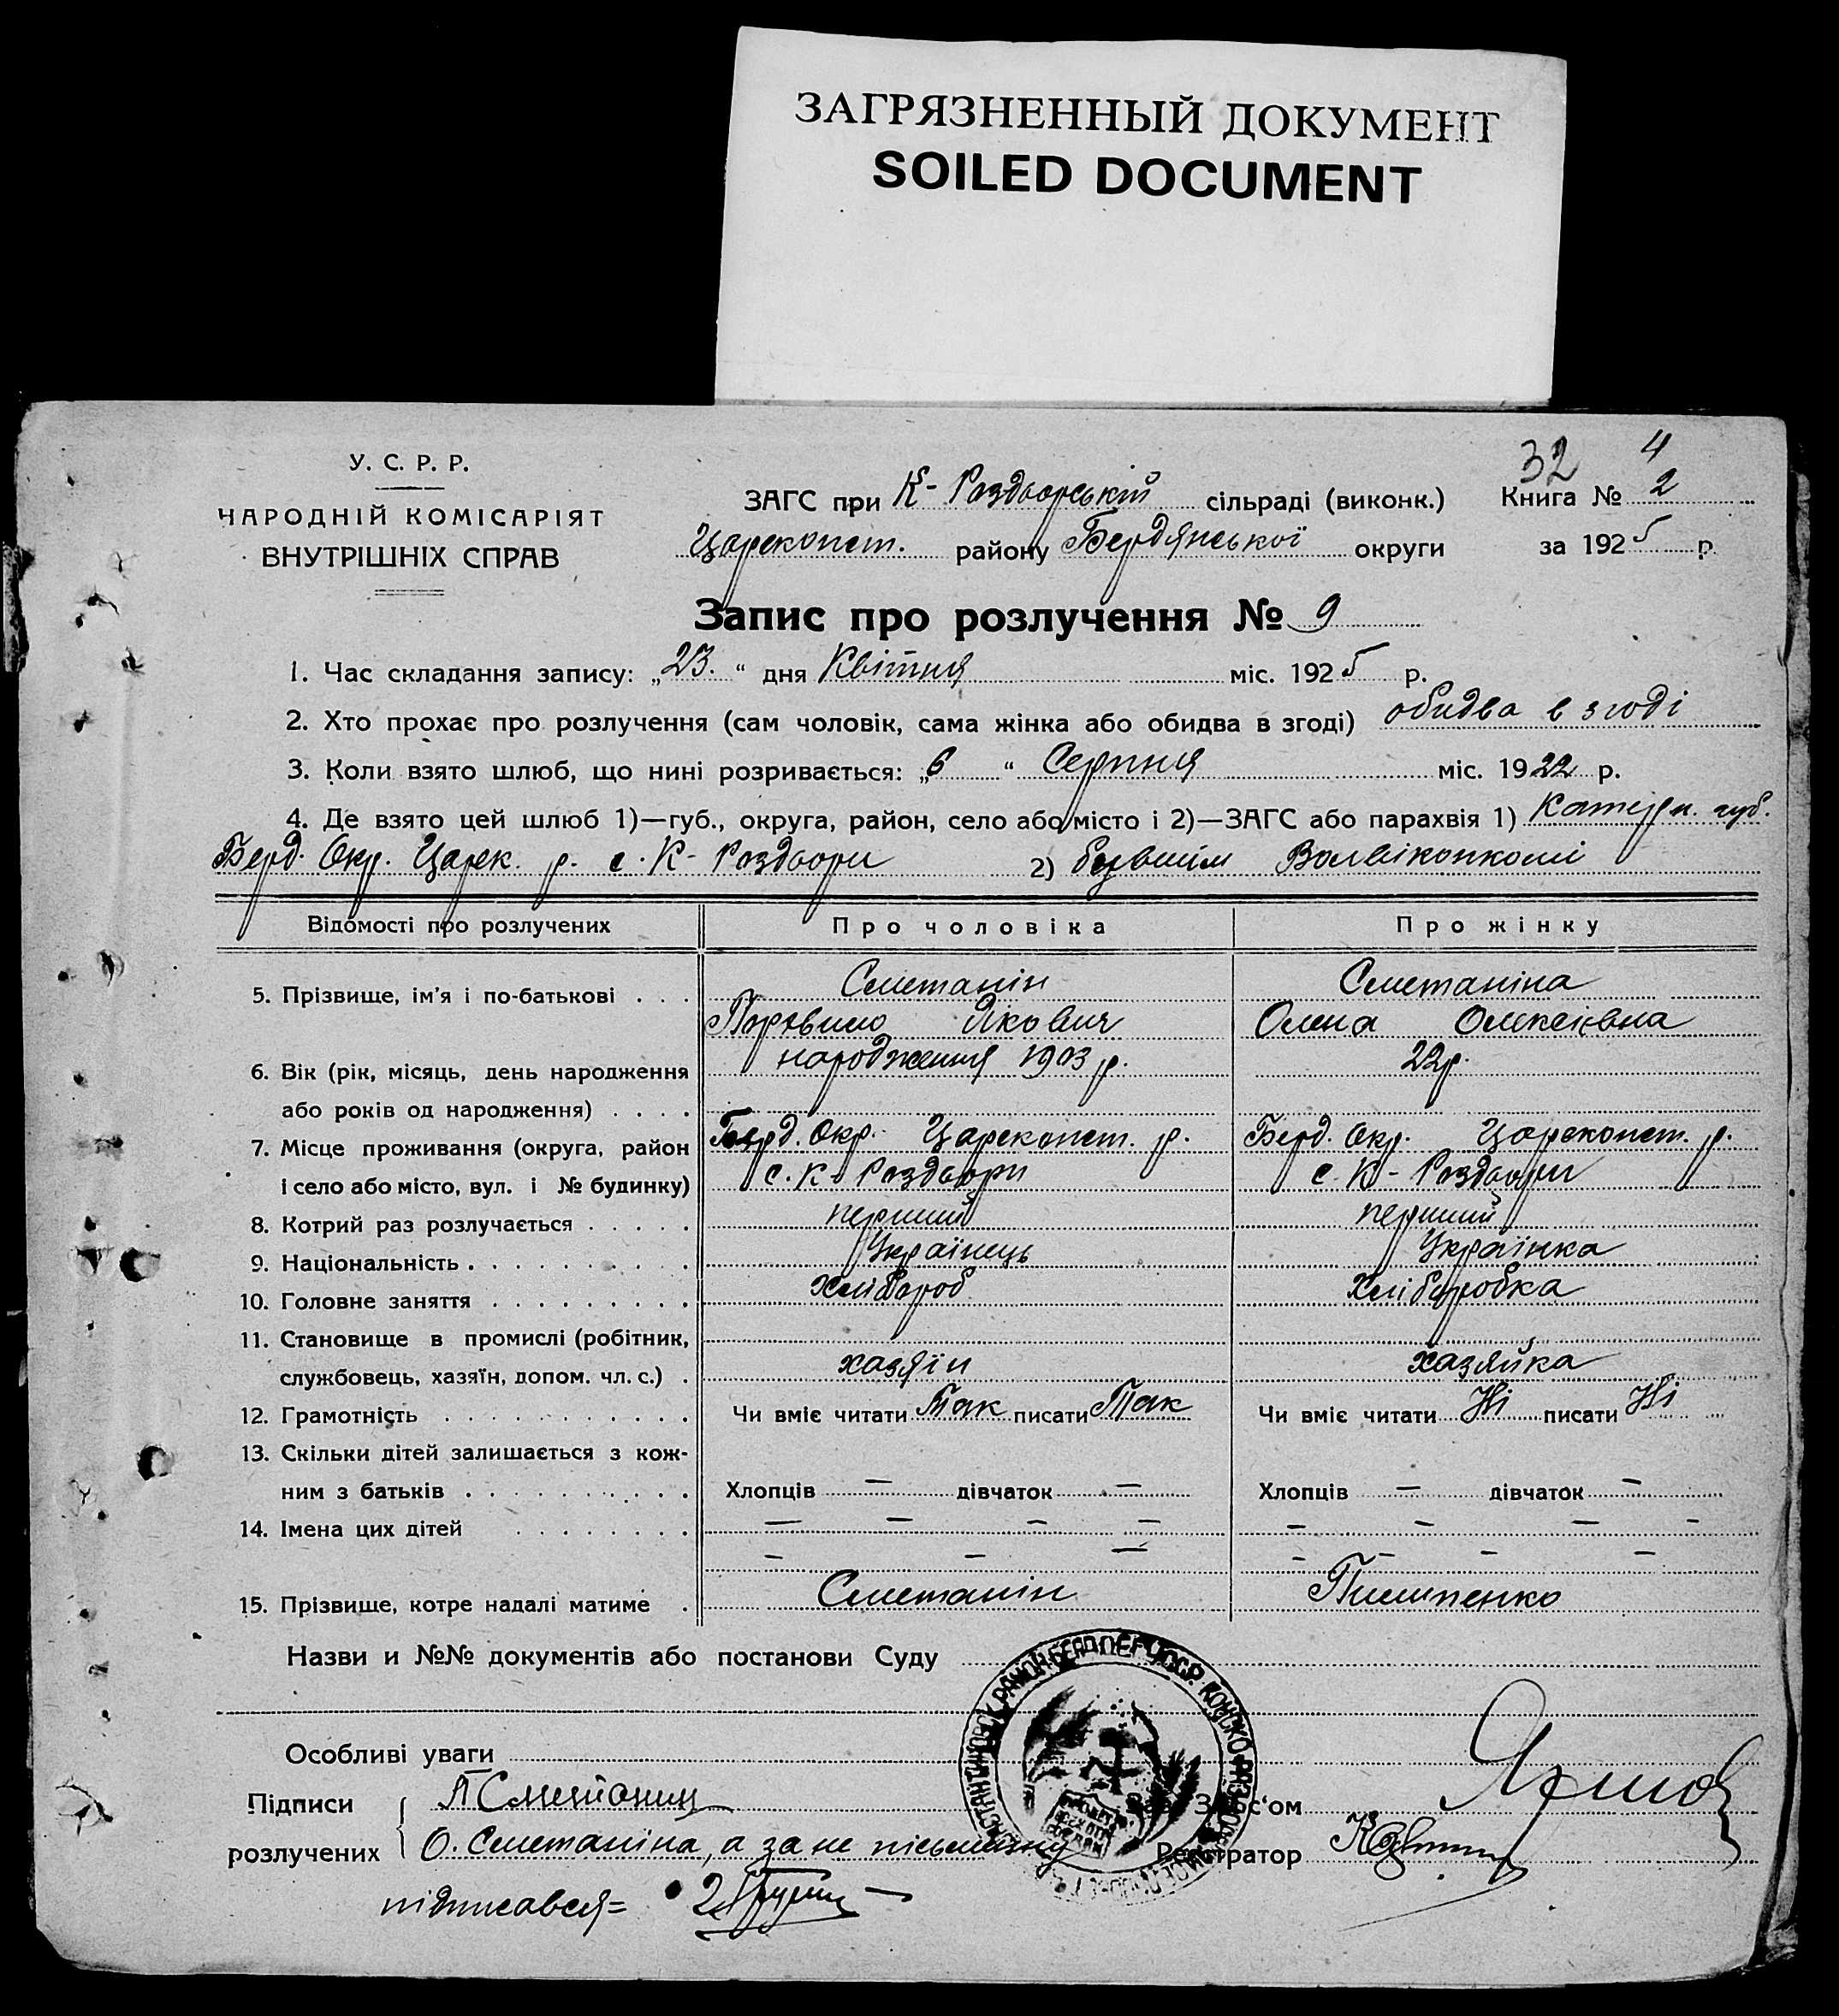 ЗАГРЯЗНЕННЫЙ ДОКУМЕНТ
SOILED DOCUMENT
32 4
У. С. Р. Р.
НАРОДНІЙ КОМІСАРІЯТ
ВНУТРІШНІХ СПРАВ
ЗАГС при К-Роздорській сільраді (виконк.) Книга № 2
Царекопст. району Бердянської округи за 1925 р.
Запис про розлучення № 9
1. Час складання запису: „23.“ дня Квітня міс. 1925 р.
2. Хто прохає про розлучення (сам чоловік, сама жінка або обидва в згоді) обидва в згоді
3. Коли взято шлюб, що нині розривається: „6“ Серпня міс. 1922 р.
4. Де взято цей шлюб 1)—губ., округа, район, село або місто і 2)—ЗАГС або парахвія 1) Катерн. губ.
Берд. Окр. Царек. р. с. К-Роздори 2) бувшім Волвіконкомі
Відомості про розлучених Про чоловіка Про жінку
5. Прізвище, ім'я і по-батькові . . . Сметанін Сметаніна
Якович Олена Олексієвна
6. Вік (рік, місяць, день народження народження 1903 р. 22р.
або років од народження) . . . .
7. Місце проживання (округа, район Берд. Окр. Царекопст. р. Берд. Окр. Царекопст. р.
і село або місто, вул. і № будинку) с. К-Роздори с. К-Роздори
8. Котрий раз розлучається . . . . . перший перший
9. Національність . . . . . . . . . . Українець Українка
10. Головне заняття . . . . . . . . . Хлібороб Хліборобка
11. Становище в промислі (робітник,
службовець, хазяїн, допом. чл. с.) . хазяїн хазяйка
12. Грамотність . . . . . . . . . . . Чи вміє читати Так писати Так Чи вміє читати Ні писати Ні
13. Скільки дітей залишається з кож-
ним з батьків . . . . . . . . . . Хлопців — дівчаток — Хлопців — дівчаток —
14. Імена цих дітей . . . . . . . . — — — — — — — —
— — — — — — —
15. Прізвище, котре надалі матиме . Сметанін Пилипенко
Назви и №№ документів або постанови Суду
Особливі уваги
Підписи П Сметанин Зав. Загс'ом
розлучених О. Сметаніна, а за не письменну Реєстратор
підписався=